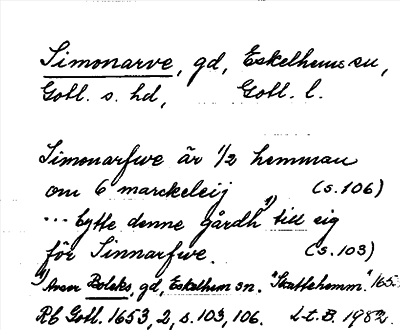 Simonarve, gd, Eskelhems sn,
Gotl. s. hd, Gotl. l.
Simonarfwe är 1/2 hemman
om 6 marckeleij (s. 106)
... bytte denne gårdh 1) till sig
för Sinnarfwe. (s. 103)
1) Anm Boleks, gd, Eskelhem sn. "Skattehemm." 165
Rb Gotl. 1653, 2, s. 103, 106. L-t. B. 1982.